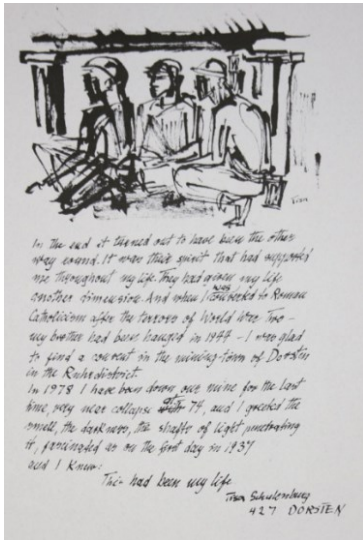 Tisa
In the end it turned out to have been the other
way round. It was their spirit that had supported
me throughout my life. They had given my life
another dimension. And when I was converted to Roman
Catholicism after the terrors of World War Two –
my brother had been hanged in 1944 – I was glad
to find a convent in the mining-town of Dorsten
in the Ruhrdistrict.
In 1978 I have been down one mine for the last
time, very near collapse at 74, and I greeted the
smell, the darkness, the shafts of light penetrating
it, fascinated as on the first day in 1937
and I knew:
This had been my life
Tisa Schulenburg
427 DORSTEN